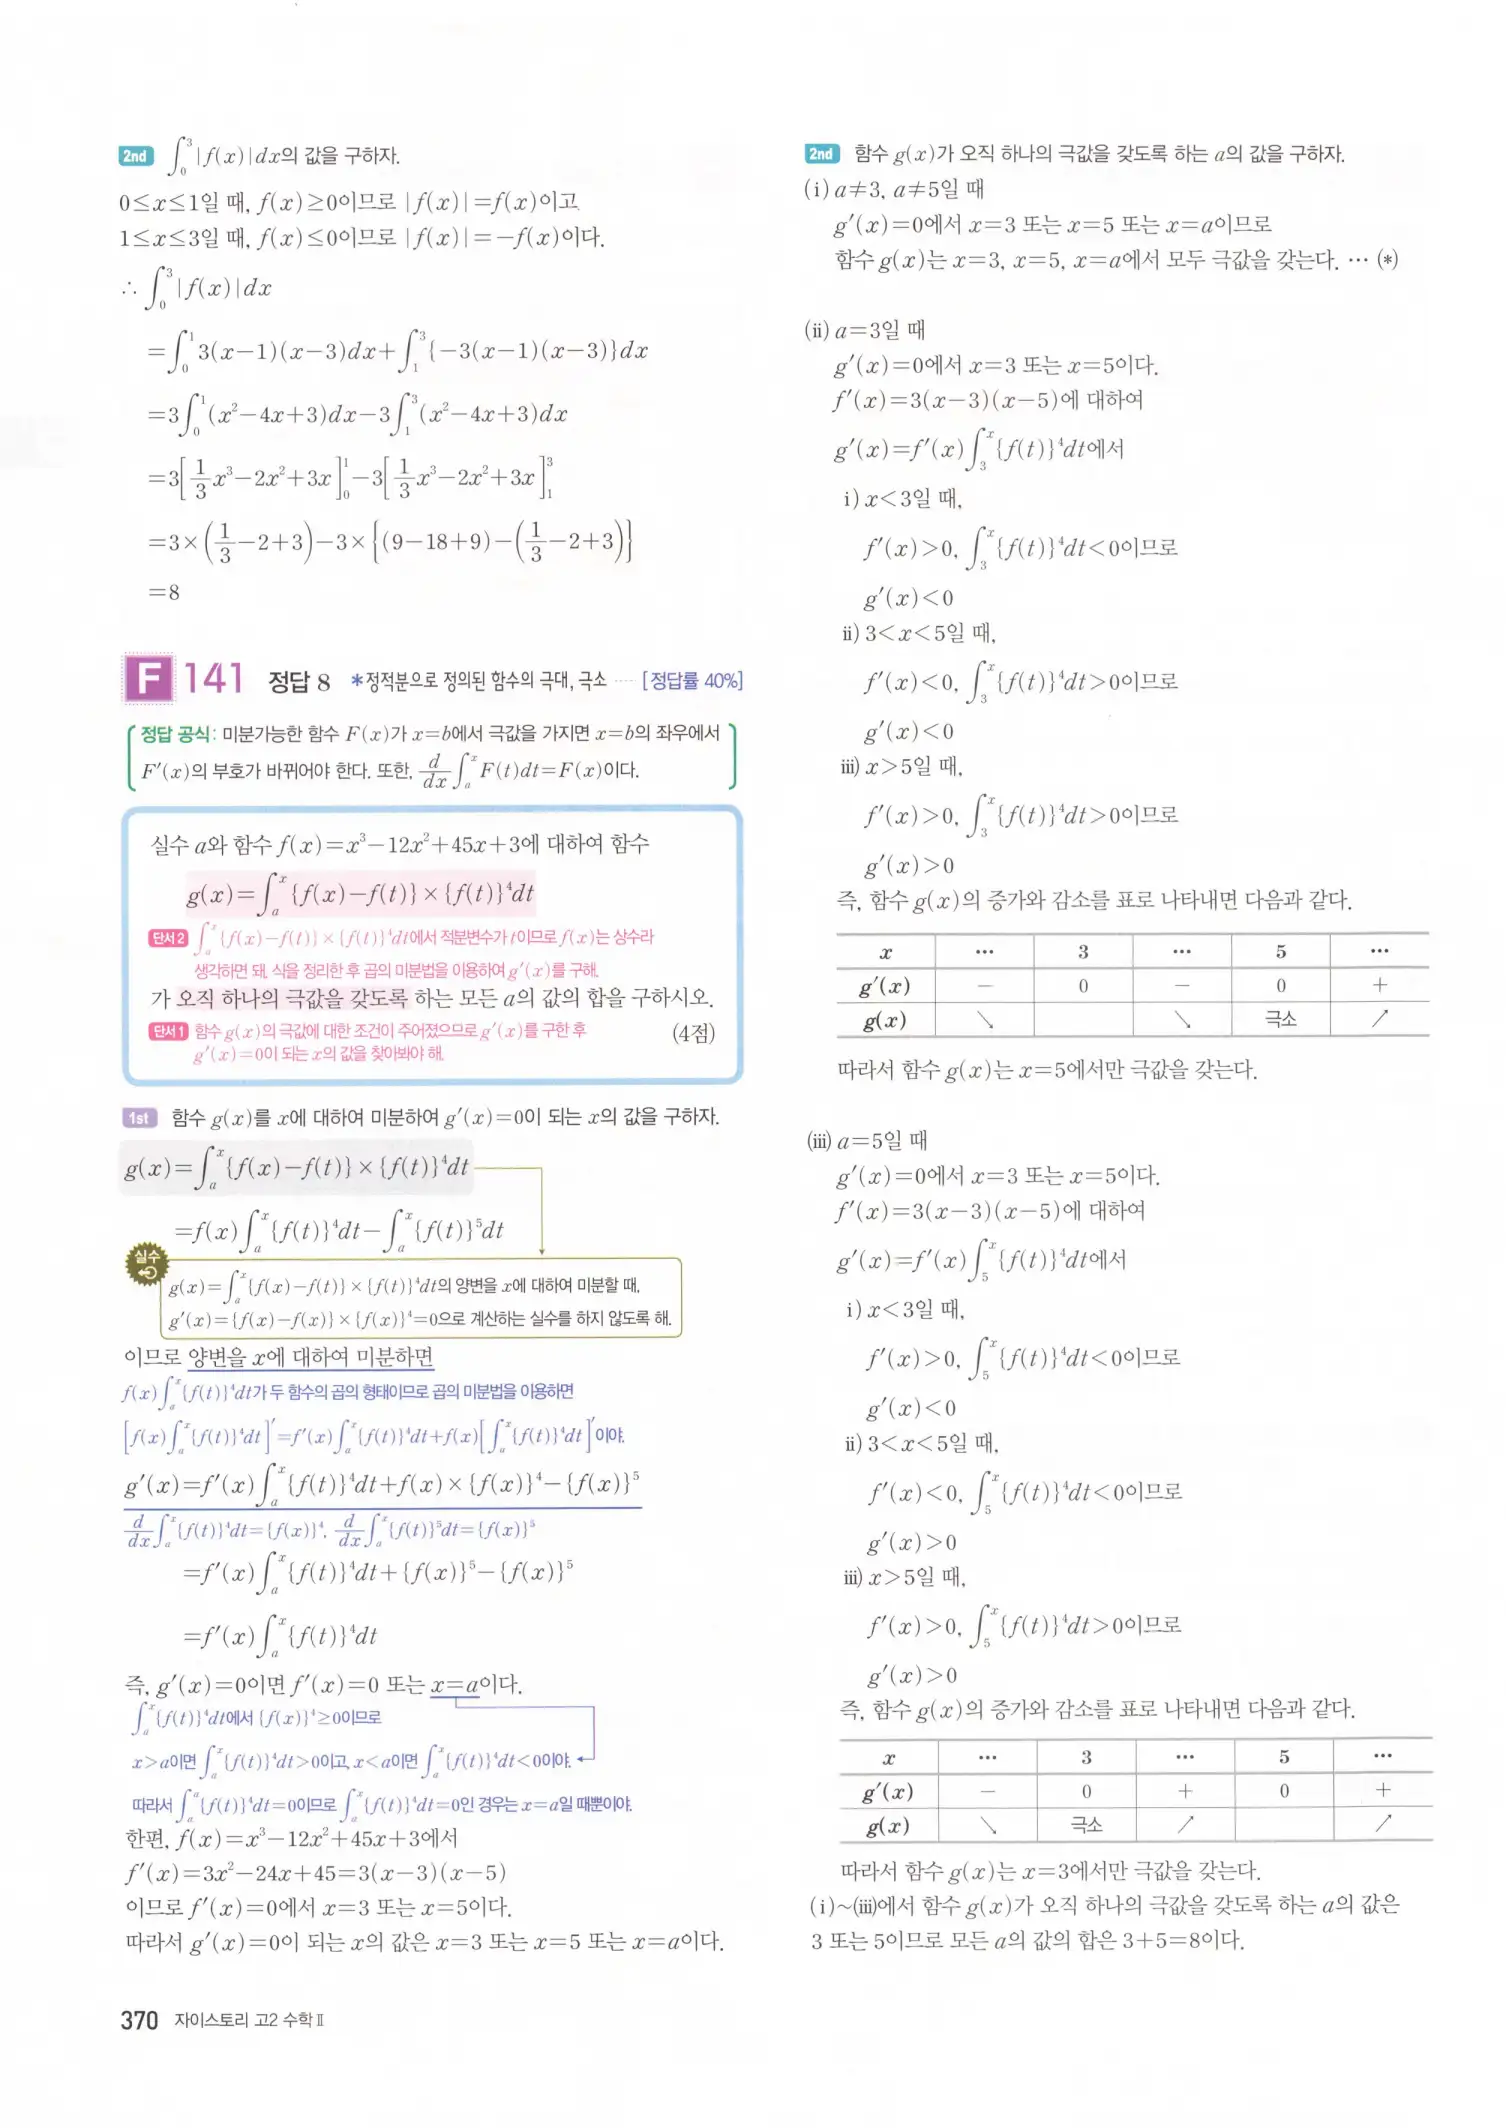 2nd ∫₀³|f(x)|dx의 값을 구하자.
0≤x≤1일 때, f(x)≥0이므로 |f(x)|=f(x)이고
1≤x≤3일 때, f(x)≤0이므로 |f(x)|=−f(x)이다.
∴ ∫₀³|f(x)|dx
=∫₀¹3(x−1)(x−3)dx+∫₁³{−3(x−1)(x−3)}dx
=3∫₀¹(x²−4x+3)dx−3∫₁³(x²−4x+3)dx
=3[1/3x³−2x²+3x]₀¹−3[1/3x³−2x²+3x]₁³
=3×(1/3−2+3)−3×{(9−18+9)−(1/3−2+3)}
=8
F 141 정답 8 *정적분으로 정의된 함수의 극대, 극소 ····· [정답률 40%]
정답 공식: 미분가능한 함수 F(x)가 x=b에서 극값을 가지면 x=b의 좌우에서
F′(x)의 부호가 바뀌어야 한다. 또한, d/dx∫ₐˣF(t)dt=F(x)이다.
실수 a와 함수 f(x)=x³−12x²+45x+3에 대하여 함수
g(x)=∫ₐˣ{f(x)−f(t)}×{f(t)}⁴dt
단서2 ∫ₐˣ{f(x)−f(t)}×{f(t)}⁴dt에서 적분변수가 t이므로 f(x)는 상수라
생각하면 돼. 식을 정리한 후 곱의 미분법을 이용하여 g′(x)를 구해.
가 오직 하나의 극값을 갖도록 하는 모든 a의 값의 합을 구하시오.
단서1 함수 g(x)의 극값에 대한 조건이 주어졌으므로 g′(x)를 구한 후 (4점)
g′(x)=0이 되는 x의 값을 찾아봐야 해.
1st 함수 g(x)를 x에 대하여 미분하여 g′(x)=0이 되는 x의 값을 구하자.
g(x)=∫ₐˣ{f(x)−f(t)}×{f(t)}⁴dt
=f(x)∫ₐˣ{f(t)}⁴dt−∫ₐˣ{f(t)}⁵dt
실수
g(x)=∫ₐˣ{f(x)−f(t)}×{f(t)}⁴dt의 양변을 x에 대하여 미분할 때,
g′(x)={f(x)−f(x)}×{f(x)}⁴=0으로 계산하는 실수를 하지 않도록 해.
이므로 양변을 x에 대하여 미분하면
f(x)∫ₐˣ{f(t)}⁴dt가 두 함수의 곱의 형태이므로 곱의 미분법을 이용하면
[f(x)∫ₐˣ{f(t)}⁴dt]′=f′(x)∫ₐˣ{f(t)}⁴dt+f(x)[∫ₐˣ{f(t)}⁴dt]′이야.
g′(x)=f′(x)∫ₐˣ{f(t)}⁴dt+f(x)×{f(x)}⁴−{f(x)}⁵
d/dx∫ₐˣ{f(t)}⁴dt={f(x)}⁴, d/dx∫ₐˣ{f(t)}⁵dt={f(x)}⁵
=f′(x)∫ₐˣ{f(t)}⁴dt+{f(x)}⁵−{f(x)}⁵
=f′(x)∫ₐˣ{f(t)}⁴dt
즉, g′(x)=0이면 f′(x)=0 또는 x=a이다.
∫ₐˣ{f(t)}⁴dt에서 {f(x)}⁴≥0이므로
x>a이면 ∫ₐˣ{f(t)}⁴dt>0이고, x<a이면 ∫ₐˣ{f(t)}⁴dt<0이야.
따라서 ∫ₐᵃ{f(t)}⁴dt=0이므로 ∫ₐˣ{f(t)}⁴dt=0인 경우는 x=a일 때뿐이야.
한편, f(x)=x³−12x²+45x+3에서
f′(x)=3x²−24x+45=3(x−3)(x−5)
이므로 f′(x)=0에서 x=3 또는 x=5이다.
따라서 g′(x)=0이 되는 x의 값은 x=3 또는 x=5 또는 x=a이다.
370 자이스토리 고2 수학 Ⅱ
2nd 함수 g(x)가 오직 하나의 극값을 갖도록 하는 a의 값을 구하자.
(ⅰ) a≠3, a≠5일 때
g′(x)=0에서 x=3 또는 x=5 또는 x=a이므로
함수 g(x)는 x=3, x=5, x=a에서 모두 극값을 갖는다. ⋯ (*)
(ⅱ) a=3일 때
g′(x)=0에서 x=3 또는 x=5이다.
f′(x)=3(x−3)(x−5)에 대하여
g′(x)=f′(x)∫₃ˣ{f(t)}⁴dt에서
ⅰ) x<3일 때,
f′(x)>0, ∫₃ˣ{f(t)}⁴dt<0이므로
g′(x)<0
ⅱ) 3<x<5일 때,
f′(x)<0, ∫₃ˣ{f(t)}⁴dt>0이므로
g′(x)<0
ⅲ) x>5일 때,
f′(x)>0, ∫₃ˣ{f(t)}⁴dt>0이므로
g′(x)>0
즉, 함수 g(x)의 증가와 감소를 표로 나타내면 다음과 같다.
x ⋯ 3 ⋯ 5 ⋯
g′(x) − 0 − 0 +
g(x) ↘ ↘ 극소 ↗
따라서 함수 g(x)는 x=5에서만 극값을 갖는다.
(ⅲ) a=5일 때
g′(x)=0에서 x=3 또는 x=5이다.
f′(x)=3(x−3)(x−5)에 대하여
g′(x)=f′(x)∫₅ˣ{f(t)}⁴dt에서
ⅰ) x<3일 때,
f′(x)>0, ∫₅ˣ{f(t)}⁴dt<0이므로
g′(x)<0
ⅱ) 3<x<5일 때,
f′(x)<0, ∫₅ˣ{f(t)}⁴dt<0이므로
g′(x)>0
ⅲ) x>5일 때,
f′(x)>0, ∫₅ˣ{f(t)}⁴dt>0이므로
g′(x)>0
즉, 함수 g(x)의 증가와 감소를 표로 나타내면 다음과 같다.
x ⋯ 3 ⋯ 5 ⋯
g′(x) − 0 + 0 +
g(x) ↘ 극소 ↗ ↗
따라서 함수 g(x)는 x=3에서만 극값을 갖는다.
(ⅰ)~(ⅲ)에서 함수 g(x)가 오직 하나의 극값을 갖도록 하는 a의 값은
3 또는 5이므로 모든 a의 값의 합은 3+5=8이다.